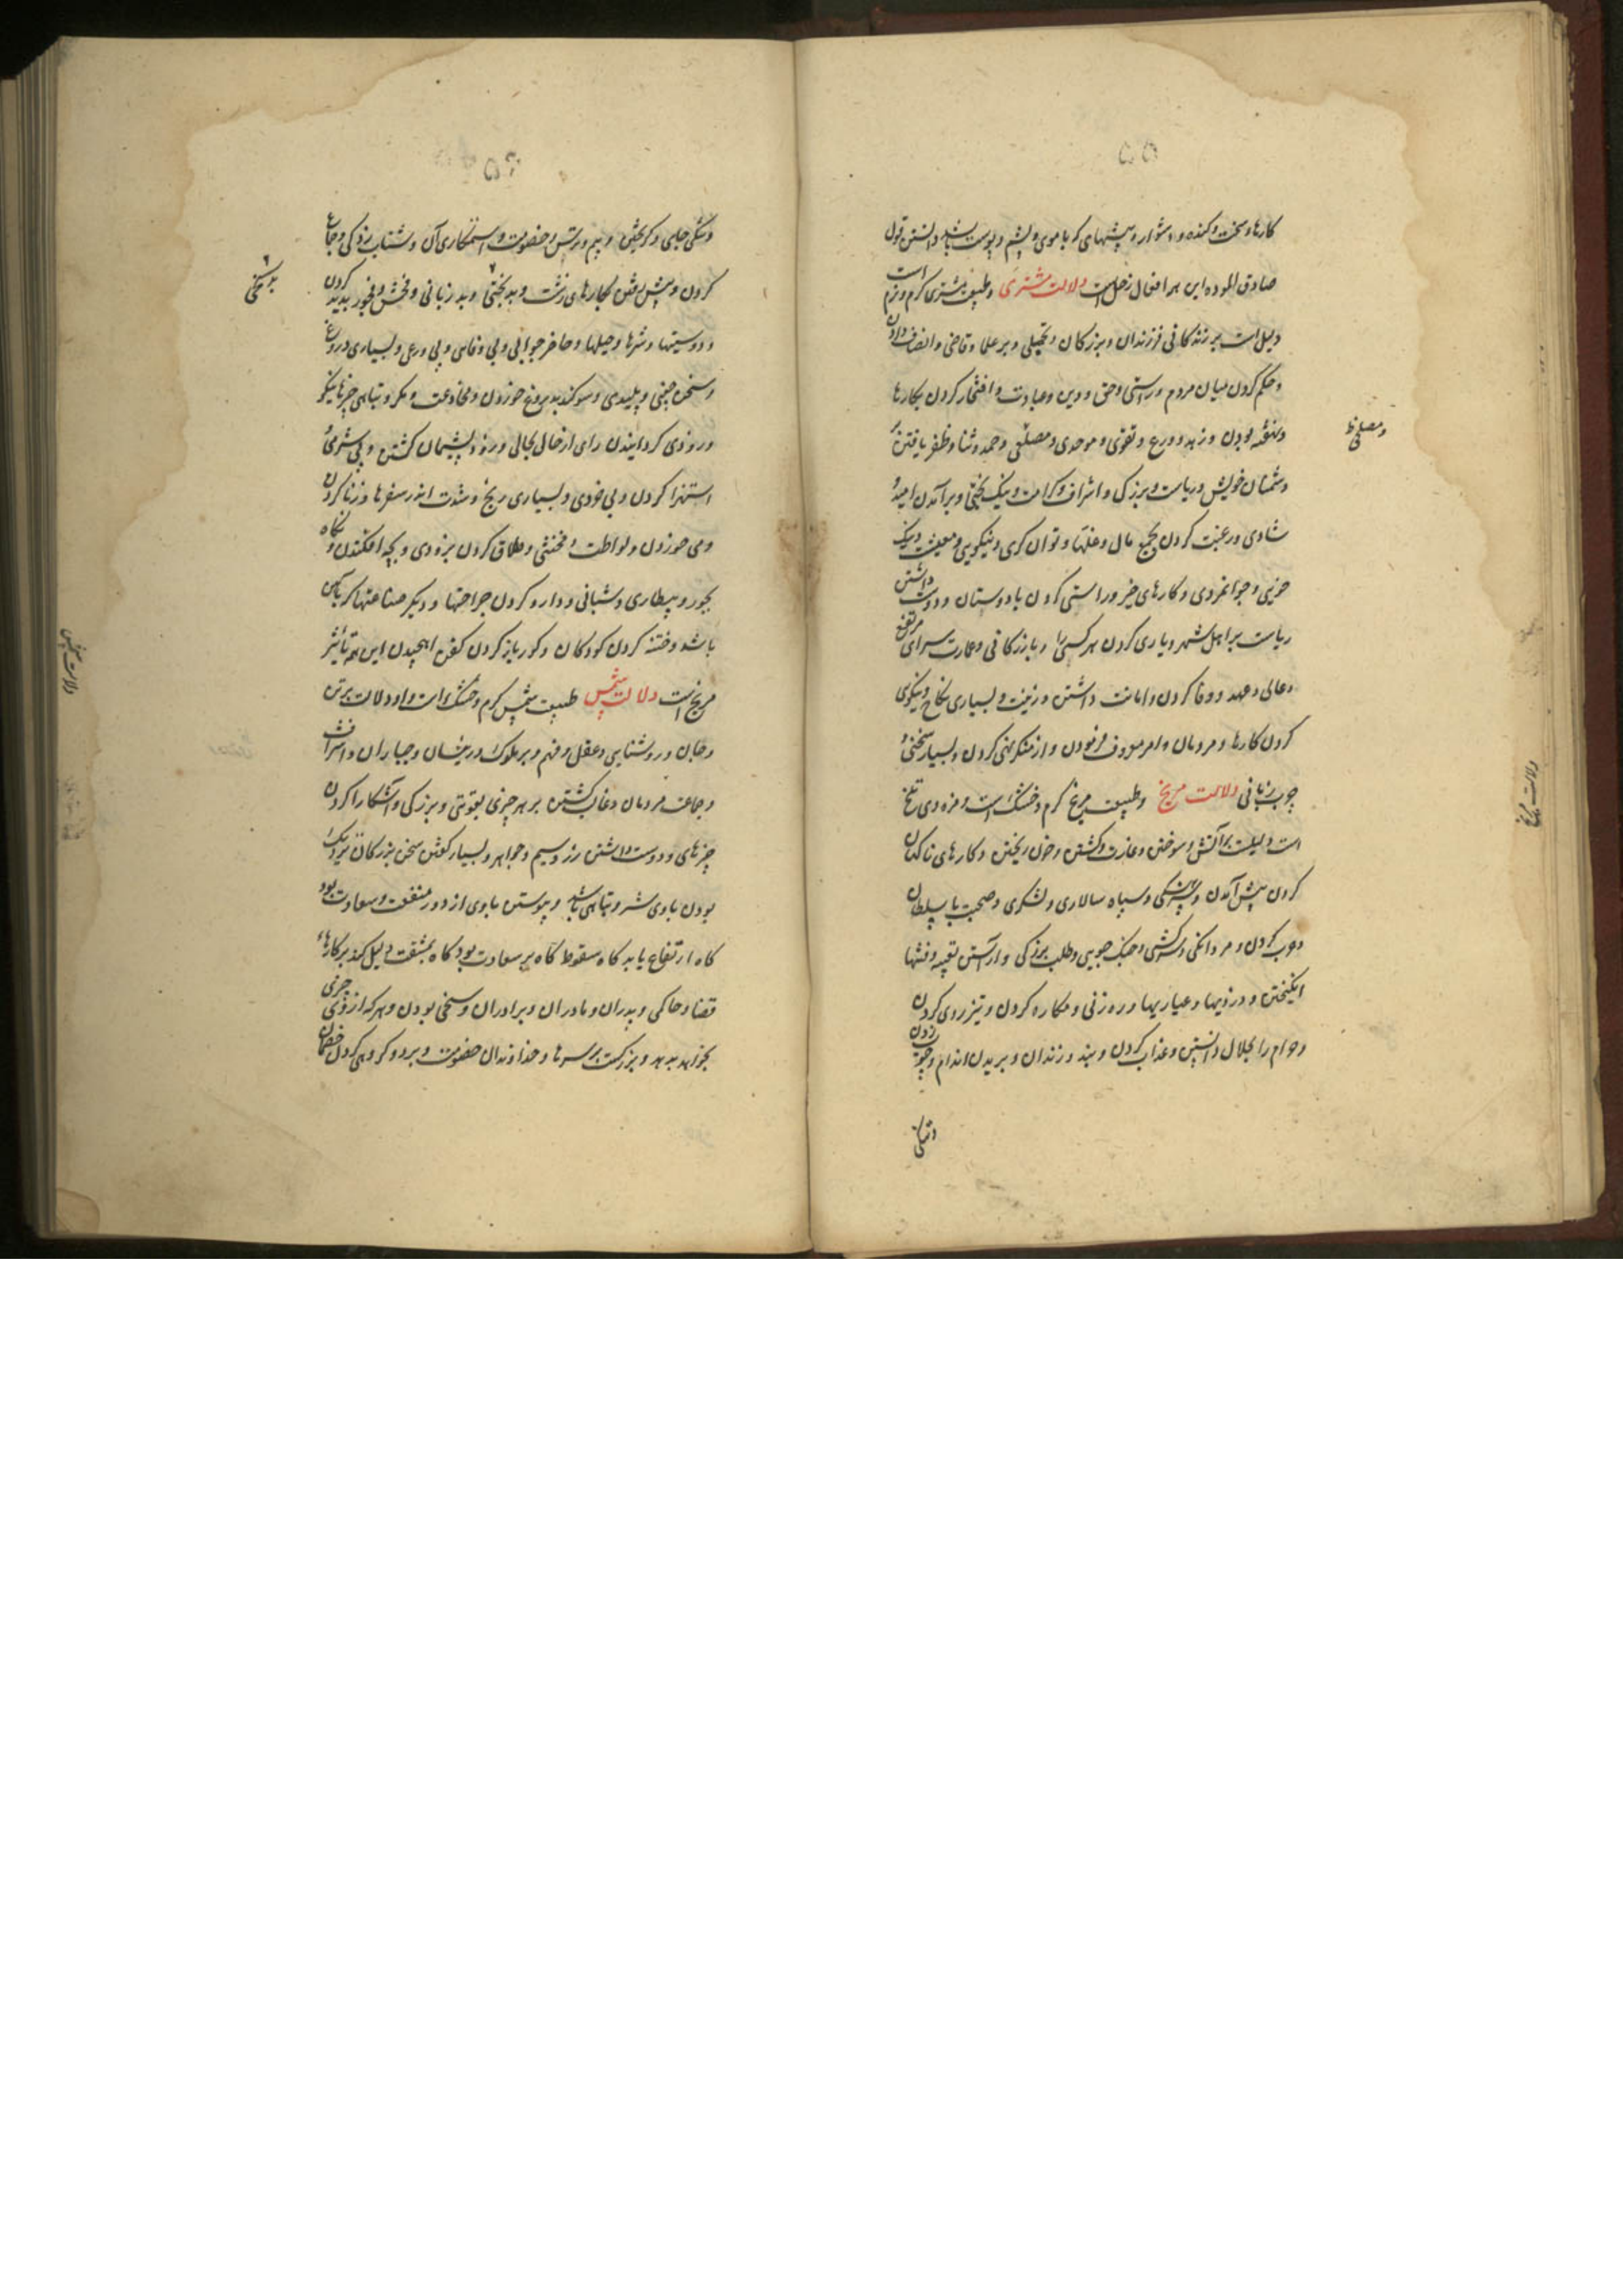 ۵۵
کارها و سخت و کنده و دشوار و پیشهای که با موی و پشم و پوست باشد و دانستن قول
صادق الموده این همه افعال زحل است دلالت مشتری و طبیعت مشتری گرم و نرم است
دلیل است بر زندکانی فرزندان و بزرکان و بر علما و قاضی و انصاف دادن
و حکم کردن میان مردم و راستی و حق و دین و عبادت و افتخار کردن بکارها
و ثقه بودن و زهد و ورع و تقوی و موحدی و مصلی و حمد و ثنا و ظفر یافتن بر
دشمنان خویش و ریاست و بزرکی و اشراف و کرامت و نیک بختی و برآمدن امید و
شادی و رغبت کردن بجمع مال و غلتها و توانکری و نیکویی و معیشت و نیک
خویی و جوانمردی و کارهای خیر و راستی کردن با دوستان و دوست داشتن
ریاست بر اهل شهر و یاری کردن هر کسی را و بازرکانی و عمارت سرای مرتفع
و عالی و عهد و وفا کردن و امانت داشتن و زینت و بسیاری نکاح و نیکوی
کردن کارها و مردمان و امر معروف فرمودن و از منکر نهی کردن و بسیار سخنی و
چرب زبانی دلالت مریخ و طبیعت مریخ گرم و خشک است و مزه وی تلخ
است دلیلست بر آتش و سوختن و غارت و کشتن و خون ریختن و کارهای ناکهان
کردن پیش آمدن و سپاه سالاری و لشکری و صحبت با سلطان
و حرب کردن و مردانکی و سرکشی و جنک جویی و طلب بزرکی و آراستن تعبیه و فتنها
انکیختن و دزدیها و عیاریها و ره زنی و مکاره کردن و تیز روی کردن
و حرام را بحلال دانستن و عذاب کردن و بند و زندان و بریدن اندام و چوب زدن
و تنکی
و مصلی ظ
دلالت مریخ
۵۶
و تنکی جای و کریختن و بیم و ترس و خصومت و ستمکاری آن و شتاب زدکی و جماع
کردن و پیش رفتن بکارهای زشت و بدبختی و بد زبانی و فحش و فجور پدید کردن
و دوستیها و شرها و حیلها و حاضر جوابی و بی وفایی و بی ورعی و بسیاری دروغ
و سخن چینی و پلیدی و سوکند بدروغ خوردن و مخادعت و مکر و تباهی چیزهای نیکو
و زودی کردانیدن رای از حال بحالی و زود پشیمان کشتن و بی شرمی و
استهزا کردن و بی خردی و بسیاری رنج و شدت اندر سفرها و زنا کردن
و می خوردن و لواطت و مخنثی و طلاق کردن بزودی و بچه افکندن و نکاه
بجور و بیطاری و شبانی و دارو کردن جراحتها و دیکر صناعتها که بآهن
باشد و ختنه کردن کودکان و کور باز کردن کفن اهجیدن این همه تأثیر
مریخ است دلالت شمس طبیعت شمس گرم و خشک است و او دلالت بر تن
و جان و روشنایی و عقل و فهم و بر ملوک و رئیسان و جباران و اشراف
و جماعت مردمان و غالب کشتن بر هر چیزی بقوتی و بزرکی و آشکارا کردن
چیزهای و دوست داشتن زر و سیم و جواهر و بسیار کفتن سخن بزرکان نزدیک
بودن با وی شر و تباهی باشد و پیوستن با وی از دور منفعت و سعادت بود
کاه ارتفاع یابد کاه سقوط کاه بر سعادت بود کاه بمشقت دلیل کند بر کارهاء
قضا و حاکمی و پدران و مادران و برادران و سخی بودن و هر که از وی چیزی
بخواهد بدهد و بزرکست بر سرها و خداوندان خصومت و برده کروهی کردن خصمان
دلالت شمس